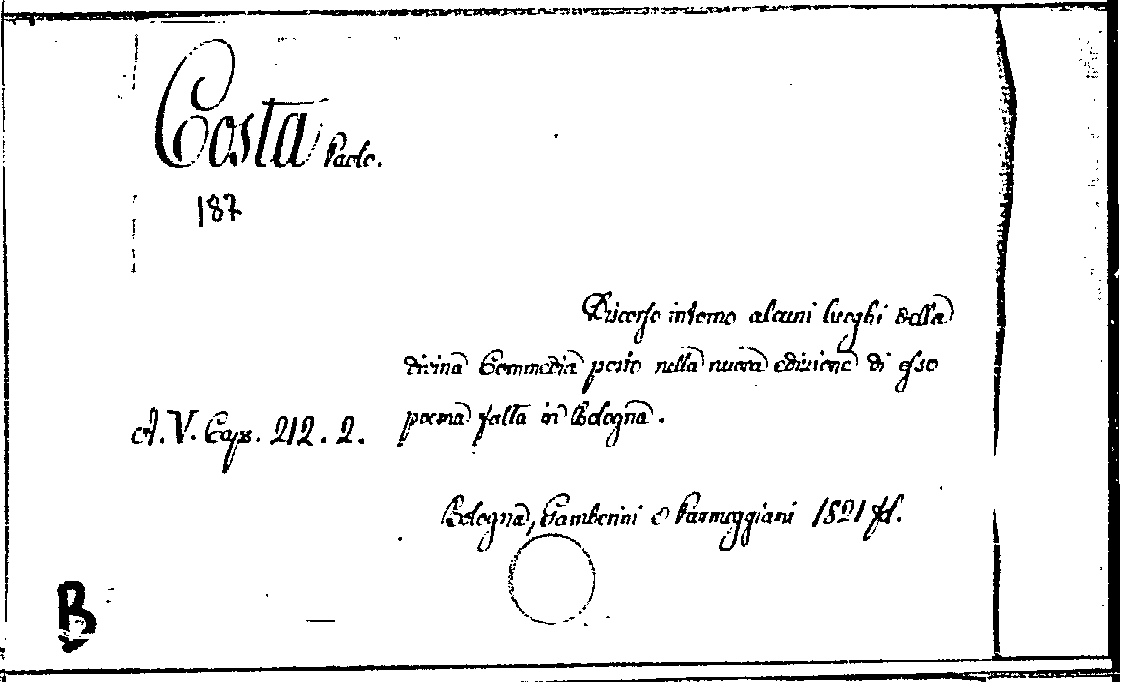 Costa Paolo.
187
Discorso intorno alcuni luoghi della
divina Commedia posto nella nuova edizione di esso
poema fatta in Bologna.
A. V. Caps. 212. 2.
Bologna, Gamberini e Parmeggiani 1821 fol.
B